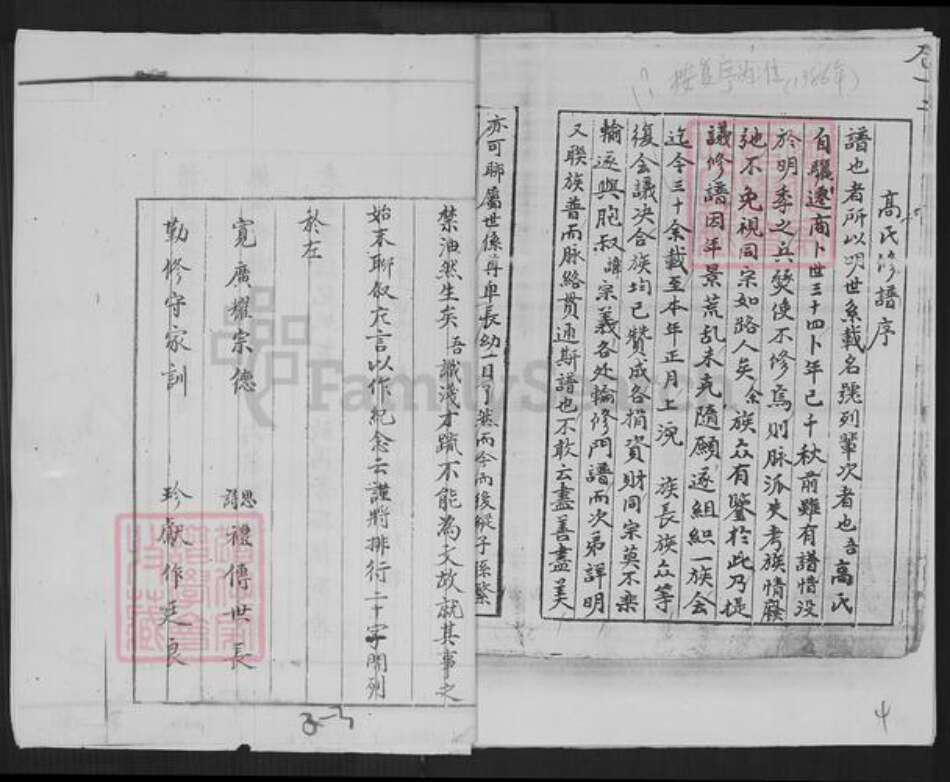 高氏修譜序
譜也者所以明世系載名號列輩次者也吾高氏
自驪遷商卜世三十四卜年已千秋前雖有譜惜没
於明季之兵燹使不修焉則脉派失考族情廢
弛不免視同宗如路人矣余族众有鑒於此乃提
議修譜因年景荒乱未克隨願遂組織一族会
迄今三十余載至本年正月上浣 族長族众等
復会議决合族均已贊成各捐資財同宗莫不樂
輸逐與胞叔 宗義各处輪修門譜而次弟詳明
又聯族普而脉絡贯通斯譜也不敢云盡善盡美
亦可聯屬世係尊卑長幼一目了然而今而後縱子孫繁
禁油然生矣吾識淺才疏不能為文故就其事之
始末聊叙数言以作紀念云謹將排行二十字開列
於左
寬廣耀宗德 聰思禮傳世長
勤修守家訓 珍獻作廷良
(1986年)
4
FamilySearch